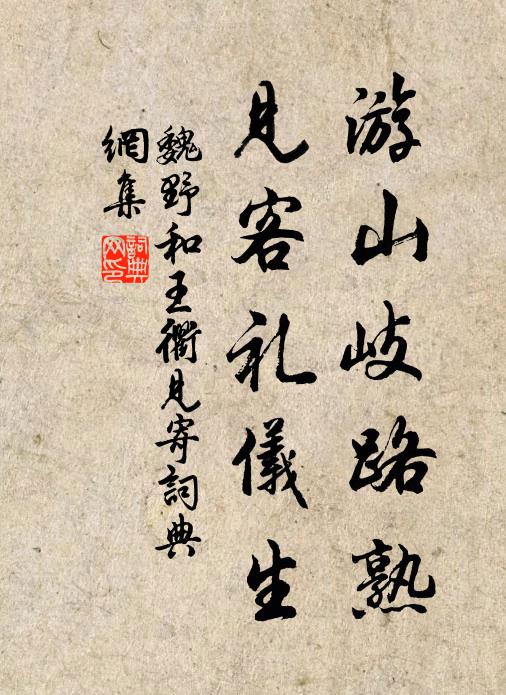 游山岐路熟
見客礼儀生
魏野和王衢見寄詞典
網集
詞典
网印